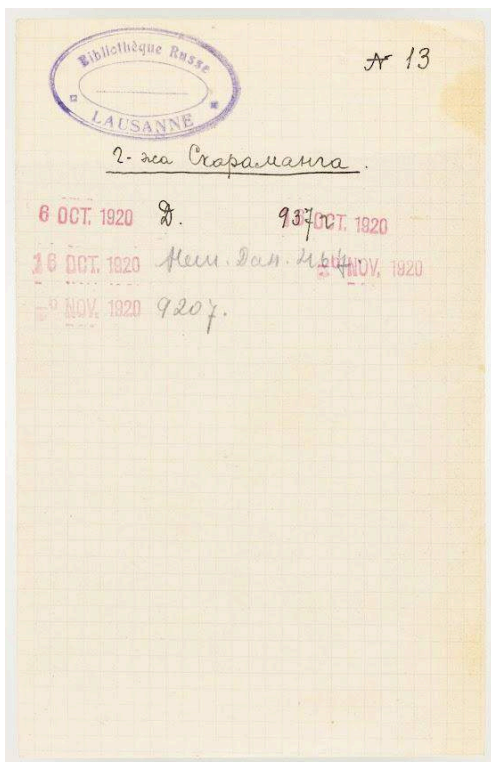 Bibliothèque Russe
LAUSANNE
№ 13
г-жа Скараманга.
6 OCT. 1920 Д. 937 г OCT. 1920
16 OCT. 1920 NOV. 1920
NOV. 1920 9207.